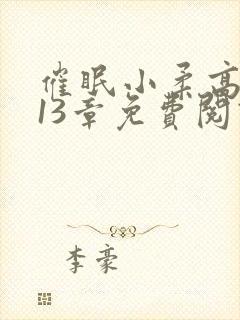 催眠小柔高
13章免費閱
李豪